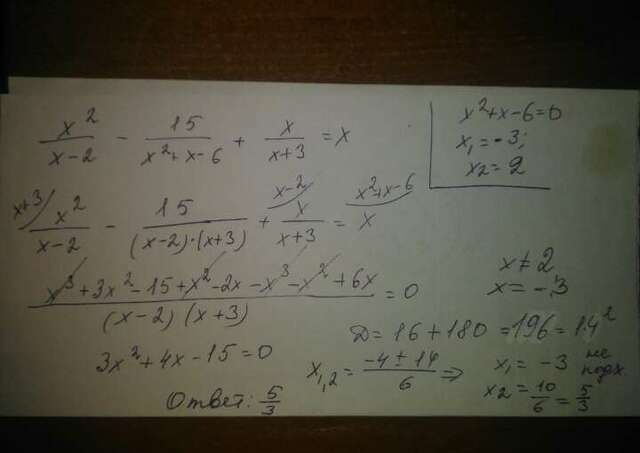 x²/(x-2) - 15/(x²+x-6) + x/(x+3) = x
x²+x-6=0
x₁=-3;
x₂=2
x+3/ x²/(x-2) - 15/((x-2)·(x+3)) + x-2/ x/(x+3) = x²+x-6/ x
(x³+3x²-15+x²-2x-x³-x²+6x)/((x-2)(x+3)) = 0
x≠2
x=-3
3x²+4x-15=0
D=16+180=196=14²
x₁,₂=(-4±14)/6 ⇒
x₁=-3 не подх.
x₂=10/6=5/3
Ответ: 5/3